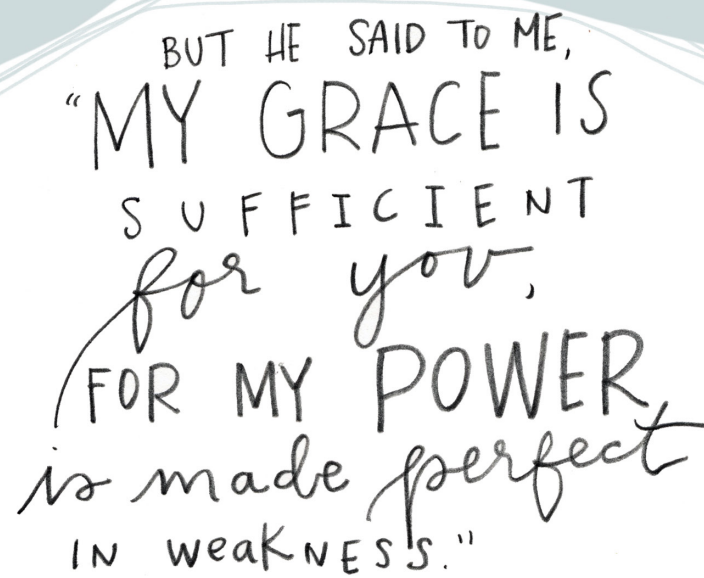 BUT HE SAID TO ME,
“MY GRACE IS
SUFFICIENT
for you,
FOR MY POWER
is made perfect
IN weaKNESS."